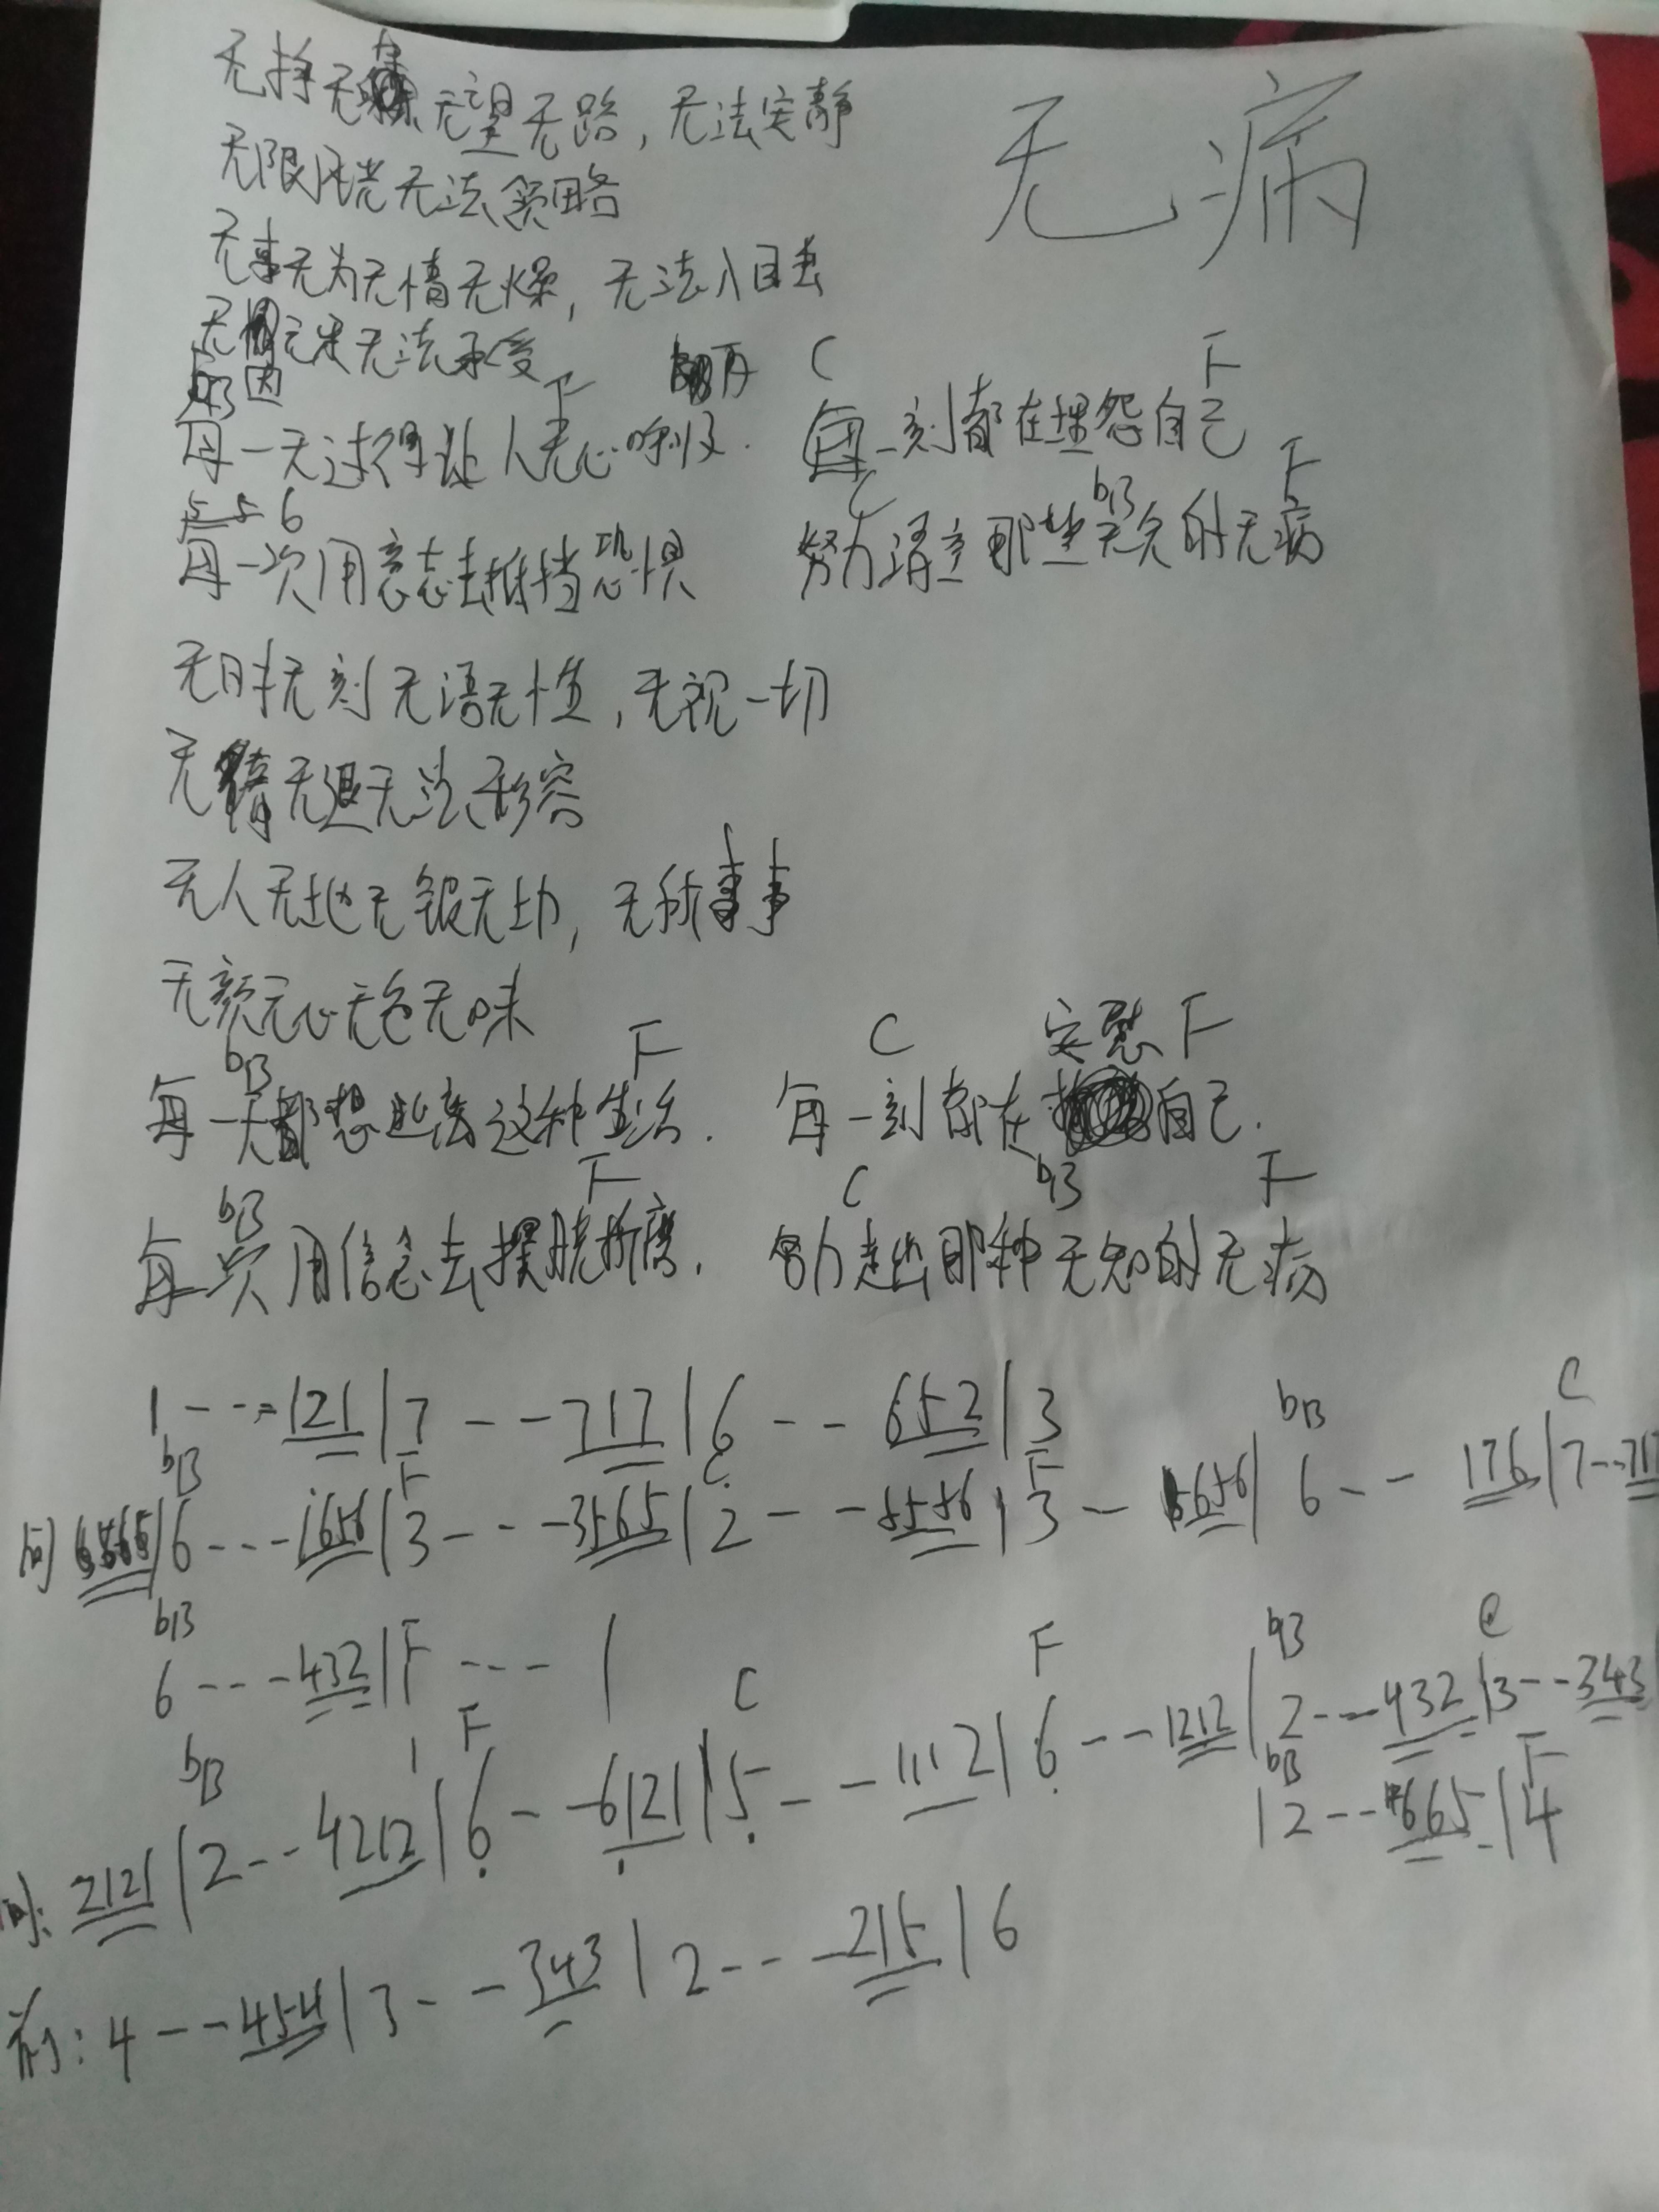 无病
无望无路，无法安静
无限风光无法领略
无事无为无情无燥，无法入目
无法承受
C F
F
每一天过得让人无心呼吸. 每一刻都在埋怨自己
C bB F
5 5 6
每一次用意志去抵挡恐惧 努力清空那些无名的无病
无时无刻无语无性，无视一切
无退无法形容
无人无地无钱无力，无所事事
无颜无心无色无味
bB F C 安慰 F
每一天都想逃离这种生活. 每一刻都在自己.
bB F C bB F
每一次用信念去摆脱折磨. 努力走出那种无知的无病
1 - - - 121 | 7 - - 717 | 6 - - 652 | 3
bB F C F bB C
间 6565 | 6 - - - 1656 | 3 - - - 3565 | 2 - - 5556 | 3 - 5656 | 6 - - 176 | 7 - - 717
bB F
6 - - - 432 | 1 - - - |
bB F C F bB C
间: 2121 | 2 - - 4212 | 6 - - 6121 | 5 - - 1112 | 6 - - 1212 | 2 - - - 432 | 3 - - 343
bB F
| 2 - - 4665 - | 4
前: 4 - - 454 | 3 - - 343 | 2 - - - 215 | 6